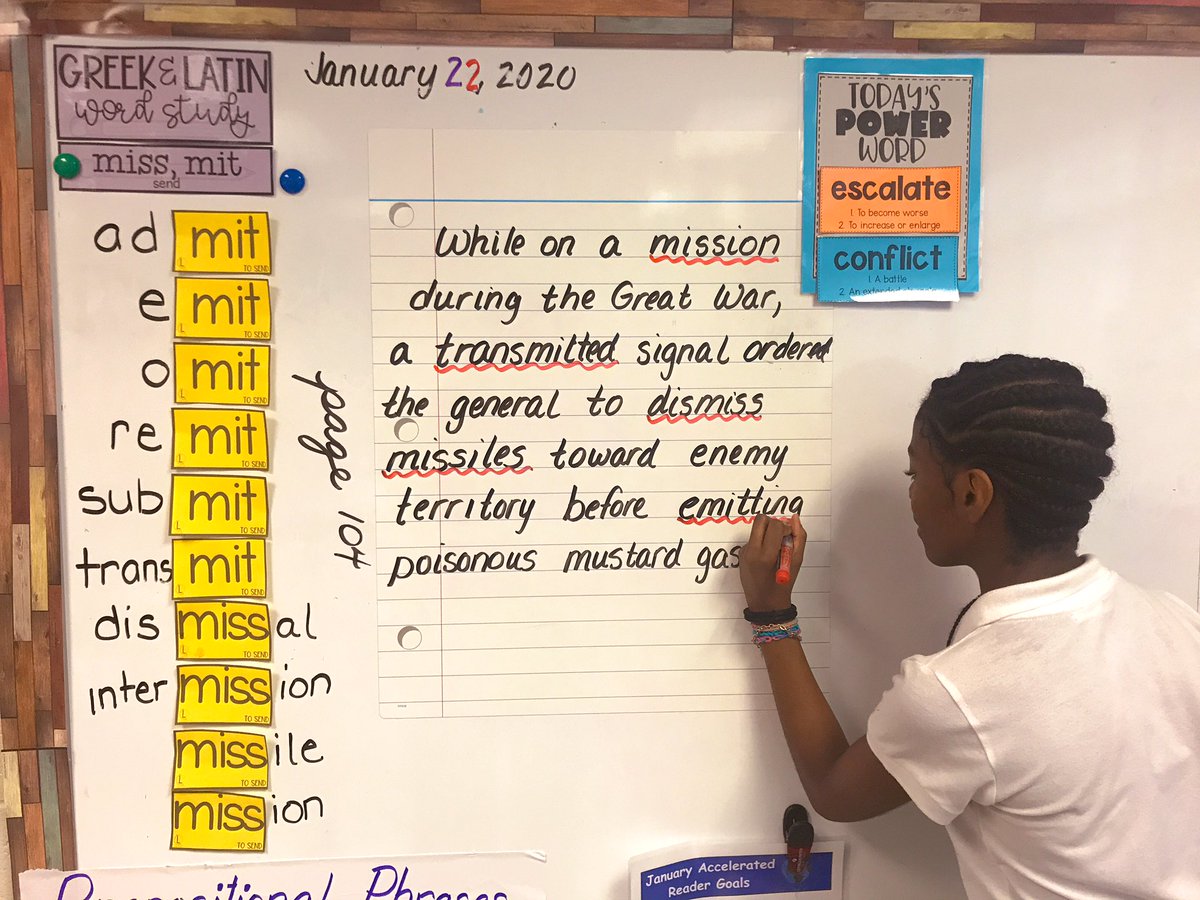 GREEK & LATIN
word study
miss, mit
send
January 22, 2020
ad mit
TO SEND
e mit
TO SEND
o mit
TO SEND
re mit
TO SEND
sub mit
TO SEND
trans mit
TO SEND
dis miss al
TO SEND
inter miss ion
TO SEND
miss ile
TO SEND
miss ion
TO SEND
page 104
While on a mission
during the Great War,
a transmitted signal ordered
the general to dismiss
missiles toward enemy
territory before emitting
poisonous mustard gas
TODAY'S
POWER
WORD
escalate
1. To become worse
2. To increase or enlarge
conflict
1. A battle
2. An
Prepositional Phrases
January Accelerated
Reader Goals